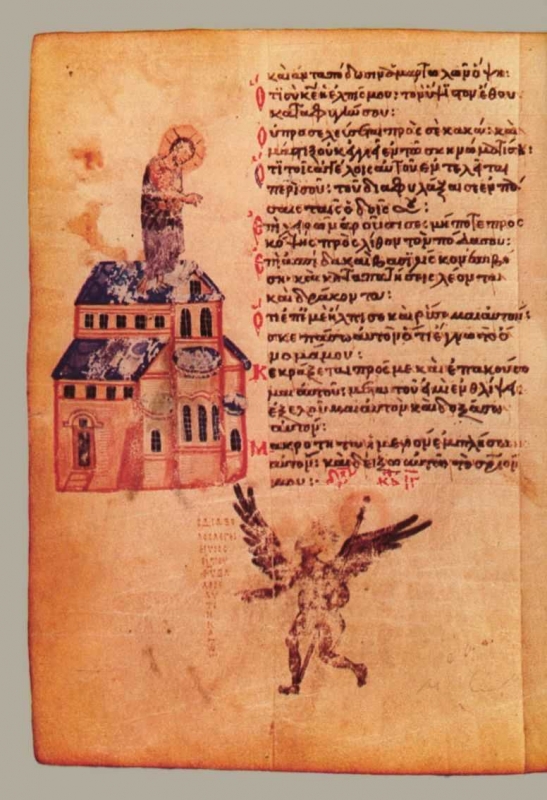 καὶ ἀνταπόδοσιν ἁμαρτωλῶν ὄψη:
Ὅτι σὺ κε ἡ ἐλπίς μου: τὸν ὕψιστον ἔθου
καταφυγήν σου:
Οὐ προσελεύσεται πρὸς σὲ κακά: καὶ
μάστιξ οὐκ ἐγγιεῖ ἐν τῷ σκηνώματί σου:
Ὅτι τοῖς ἀγγέλοις αὐτοῦ ἐντελεῖται
περὶ σοῦ: τοῦ διαφυλάξαι σε ἐν πά
σαις ταῖς ὁδοῖς σου:
Ἐπὶ χειρῶν ἀροῦσί σε: μήποτε προς
κόψης πρὸς λίθον τὸν πόδα σου:
Ἐπὶ ἀσπίδα καὶ βασιλίσκον ἐπιβή
ση: καὶ καταπατήσεις λέοντα
καὶ δράκοντα:
Ὅτι ἐπ' ἐμὲ ἤλπισε καὶ ῥύσομαι αὐτόν:
σκεπάσω αὐτὸν ὅτι ἔγνω τὸ ὄ
νομά μου:
Κεκράξεται πρός με καὶ ἐπακούσο
μαι αὐτοῦ: μετ' αὐτοῦ εἰμι ἐν θλίψει:
ἐξελοῦμαι αὐτὸν καὶ δοξάσω
αὐτόν:
Μακρότητι ἡμερῶν ἐμπλήσω
αὐτόν: καὶ δείξω αὐτῷ τὸ σριόν
μου:-